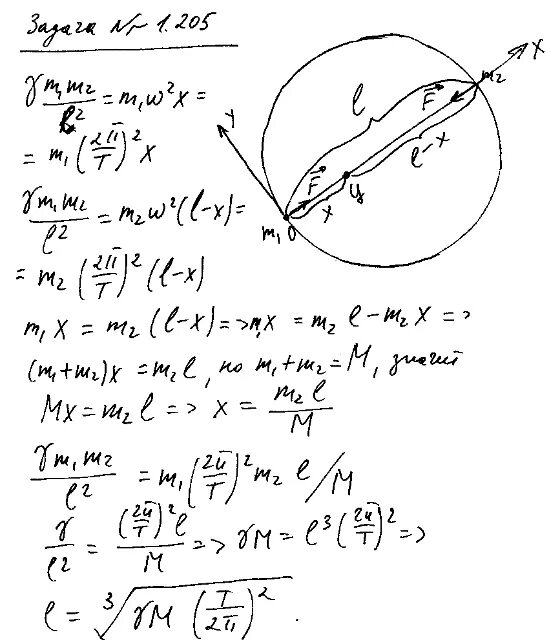 Задача № 1.205
γ m₁m₂/l² = m₁ω²x =
= m₁ (2π/T)² x
γ m₁m₂/l² = m₂ω²(l-x) =
= m₂ (2π/T)² (l-x)
m₁x = m₂(l-x) => m₁x = m₂l - m₂x =>
(m₁+m₂)x = m₂l, но m₁+m₂ = M, значит
Mx = m₂l => x = m₂l/M
γ m₁m₂/l² = m₁ (2π/T)² m₂ l/M
γ/l² = (2π/T)² l/M => γM = l³ (2π/T)² =>
l = ∛(γM (T/2π)²).
X
m₂
F
l
Y
l-x
F
ц
x
m₁ O